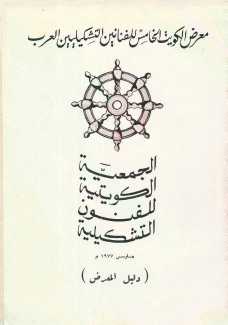 معرض الكويت الخامس للفنانين التشكيليين العرب
الجمعية
الكويتية
للفنون
التشكيلية
مارس ١٩٧٧ م
( دليل المعرض )